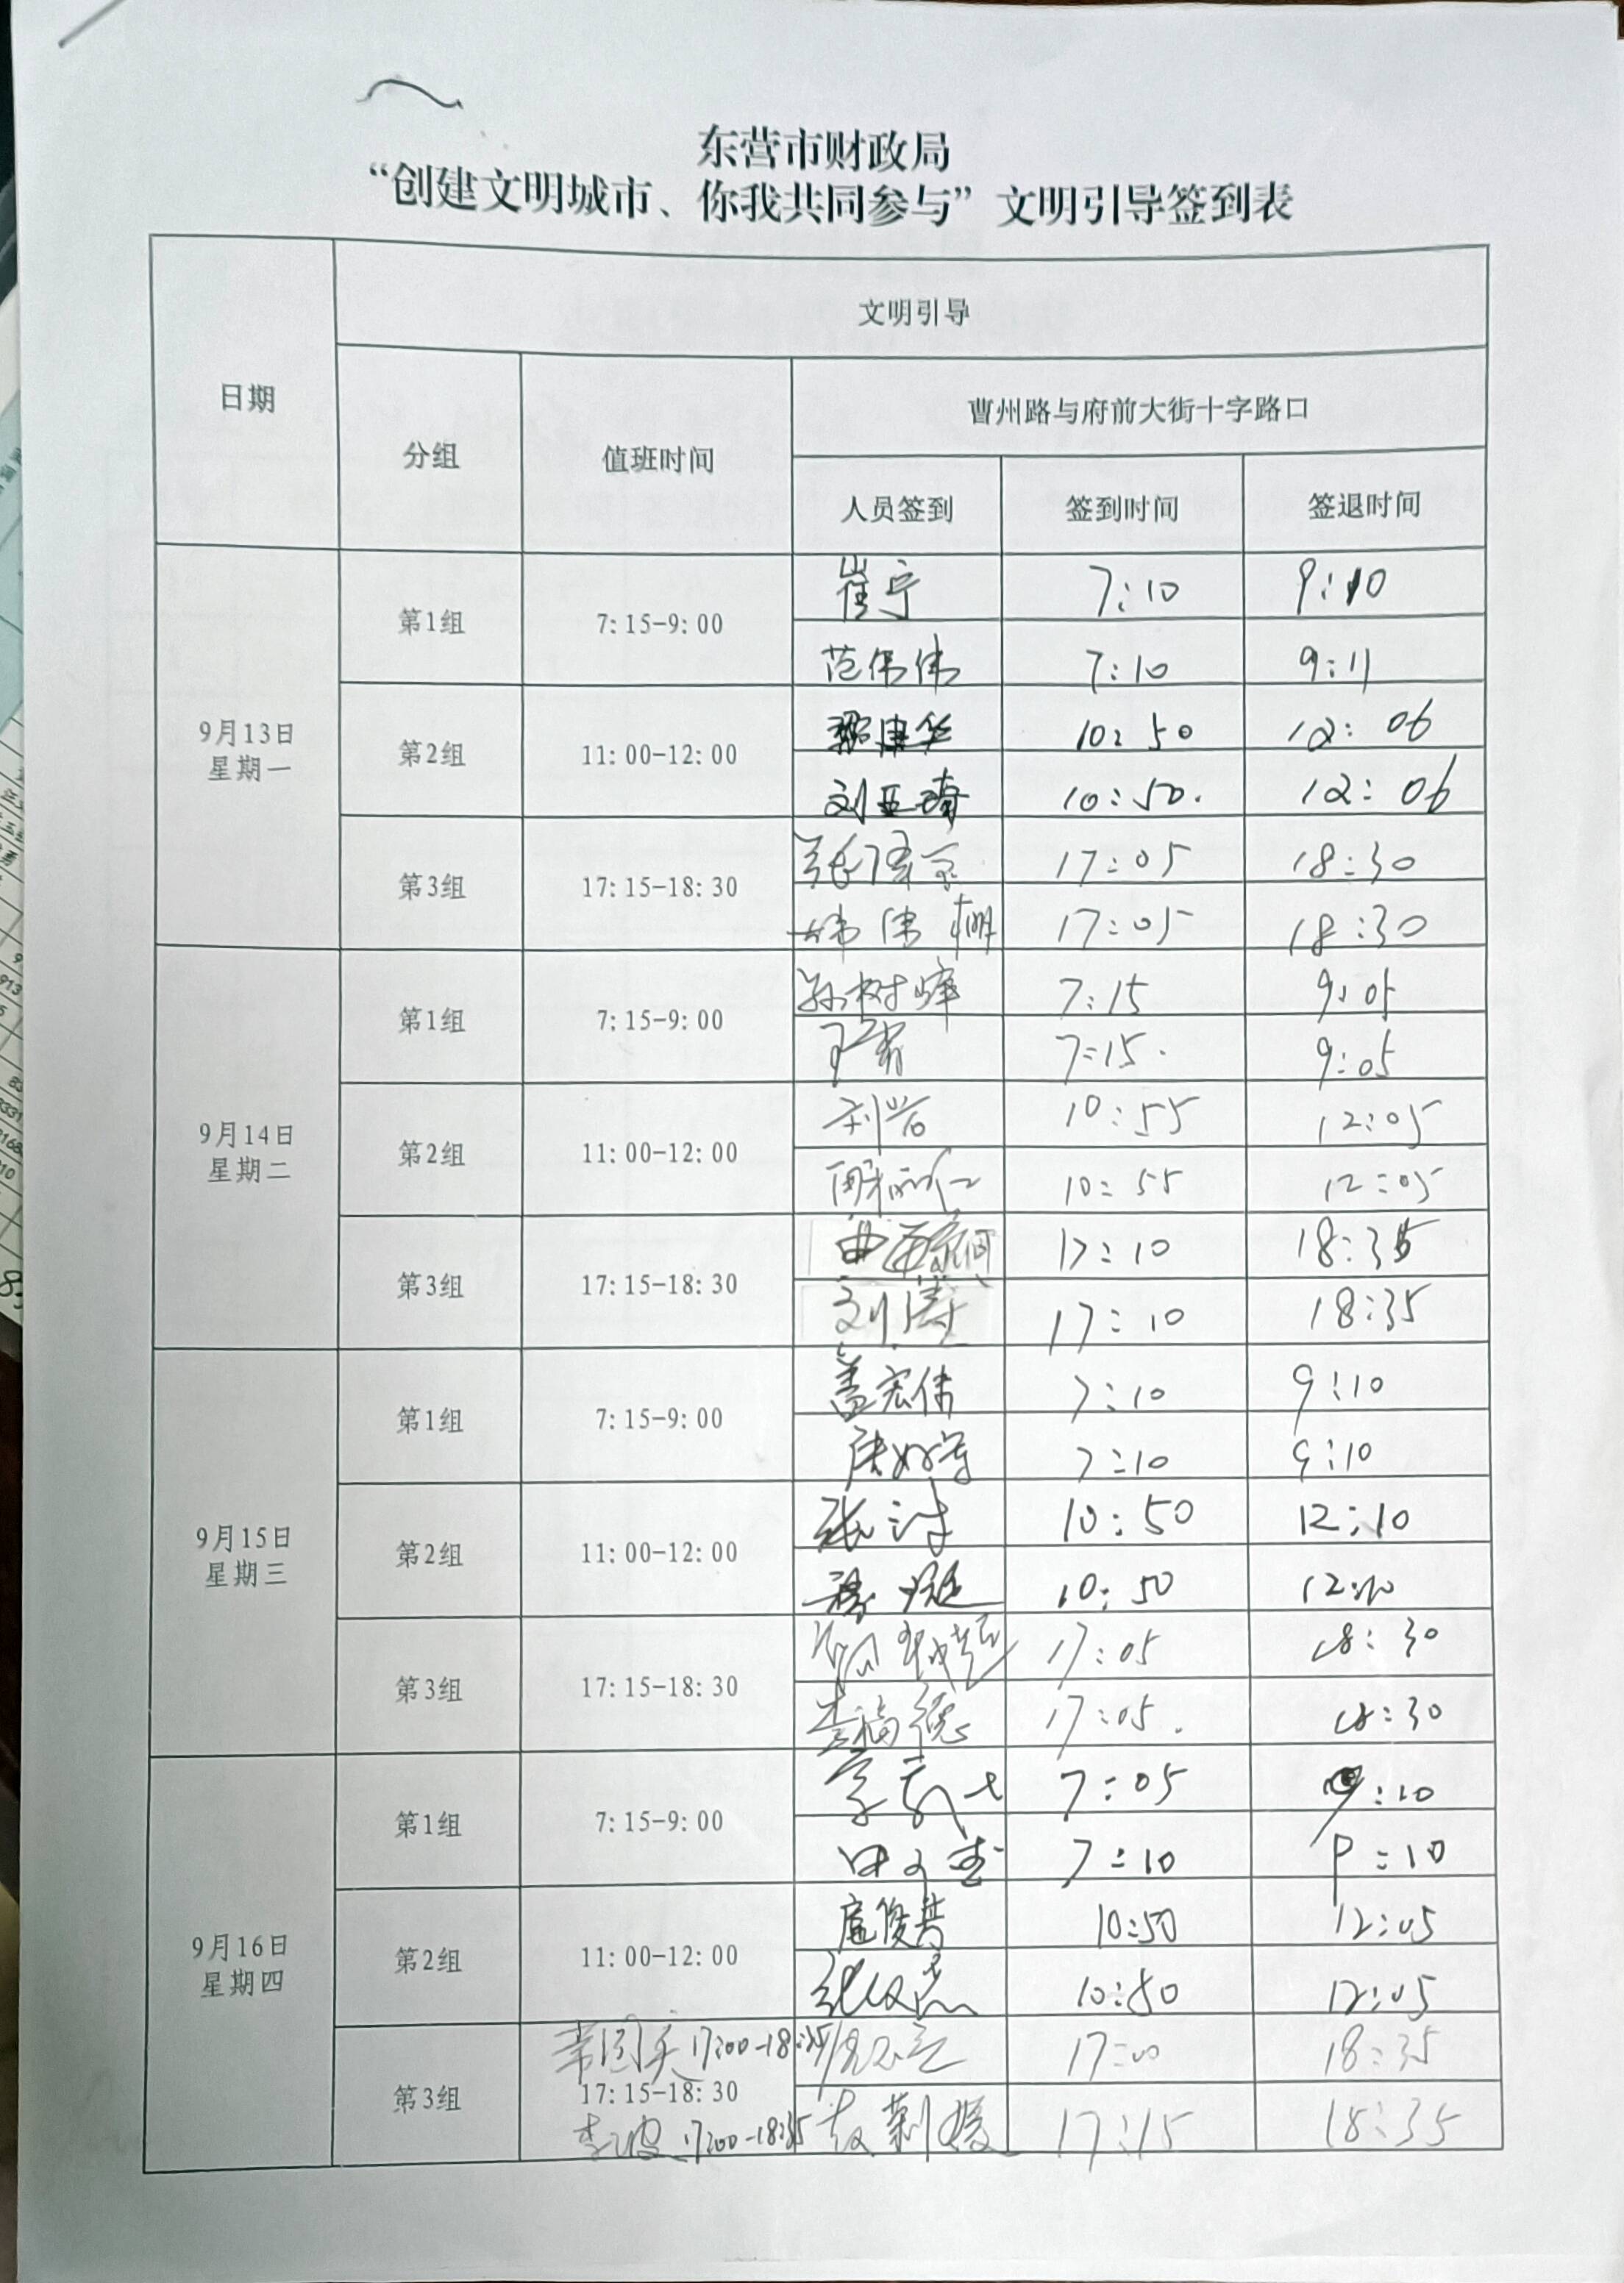 东营市财政局
“创建文明城市、你我共同参与”文明引导签到表
日期
文明引导
分组
值班时间
曹州路与府前大街十字路口
人员签到
签到时间
签退时间
9月13日
星期一
第1组
7:15-9:00
崔宁 7:10 9:10
范伟伟 7:10 9:11
第2组
11:00-12:00
10:50 12:06
刘亚琦 10:50. 12:06
第3组
17:15-18:30
17:05 18:30
17:05 18:30
9月14日
星期二
第1组
7:15-9:00
孙树峰 7:15 9:05
7:15. 9:05
第2组
11:00-12:00
10:55 12:05
10:55 12:05
第3组
17:15-18:30
17:10 18:35
刘涛 17:10 18:35
9月15日
星期三
第1组
7:15-9:00
盖宏伟 7:10 9:10
7:10 9:10
第2组
11:00-12:00
张涛 10:50 12:10
10:50 12:10
第3组
17:15-18:30
17:05 18:30
李福德 17:05. 18:30
9月16日
星期四
第1组
7:15-9:00
7:05 9:10
7:10 9:10
第2组
11:00-12:00
10:50 12:05
10:50 12:05
第3组
17:00-18:35
17:15-18:30
李波 17:00-18:35
17:00 18:35
17:15 18:35